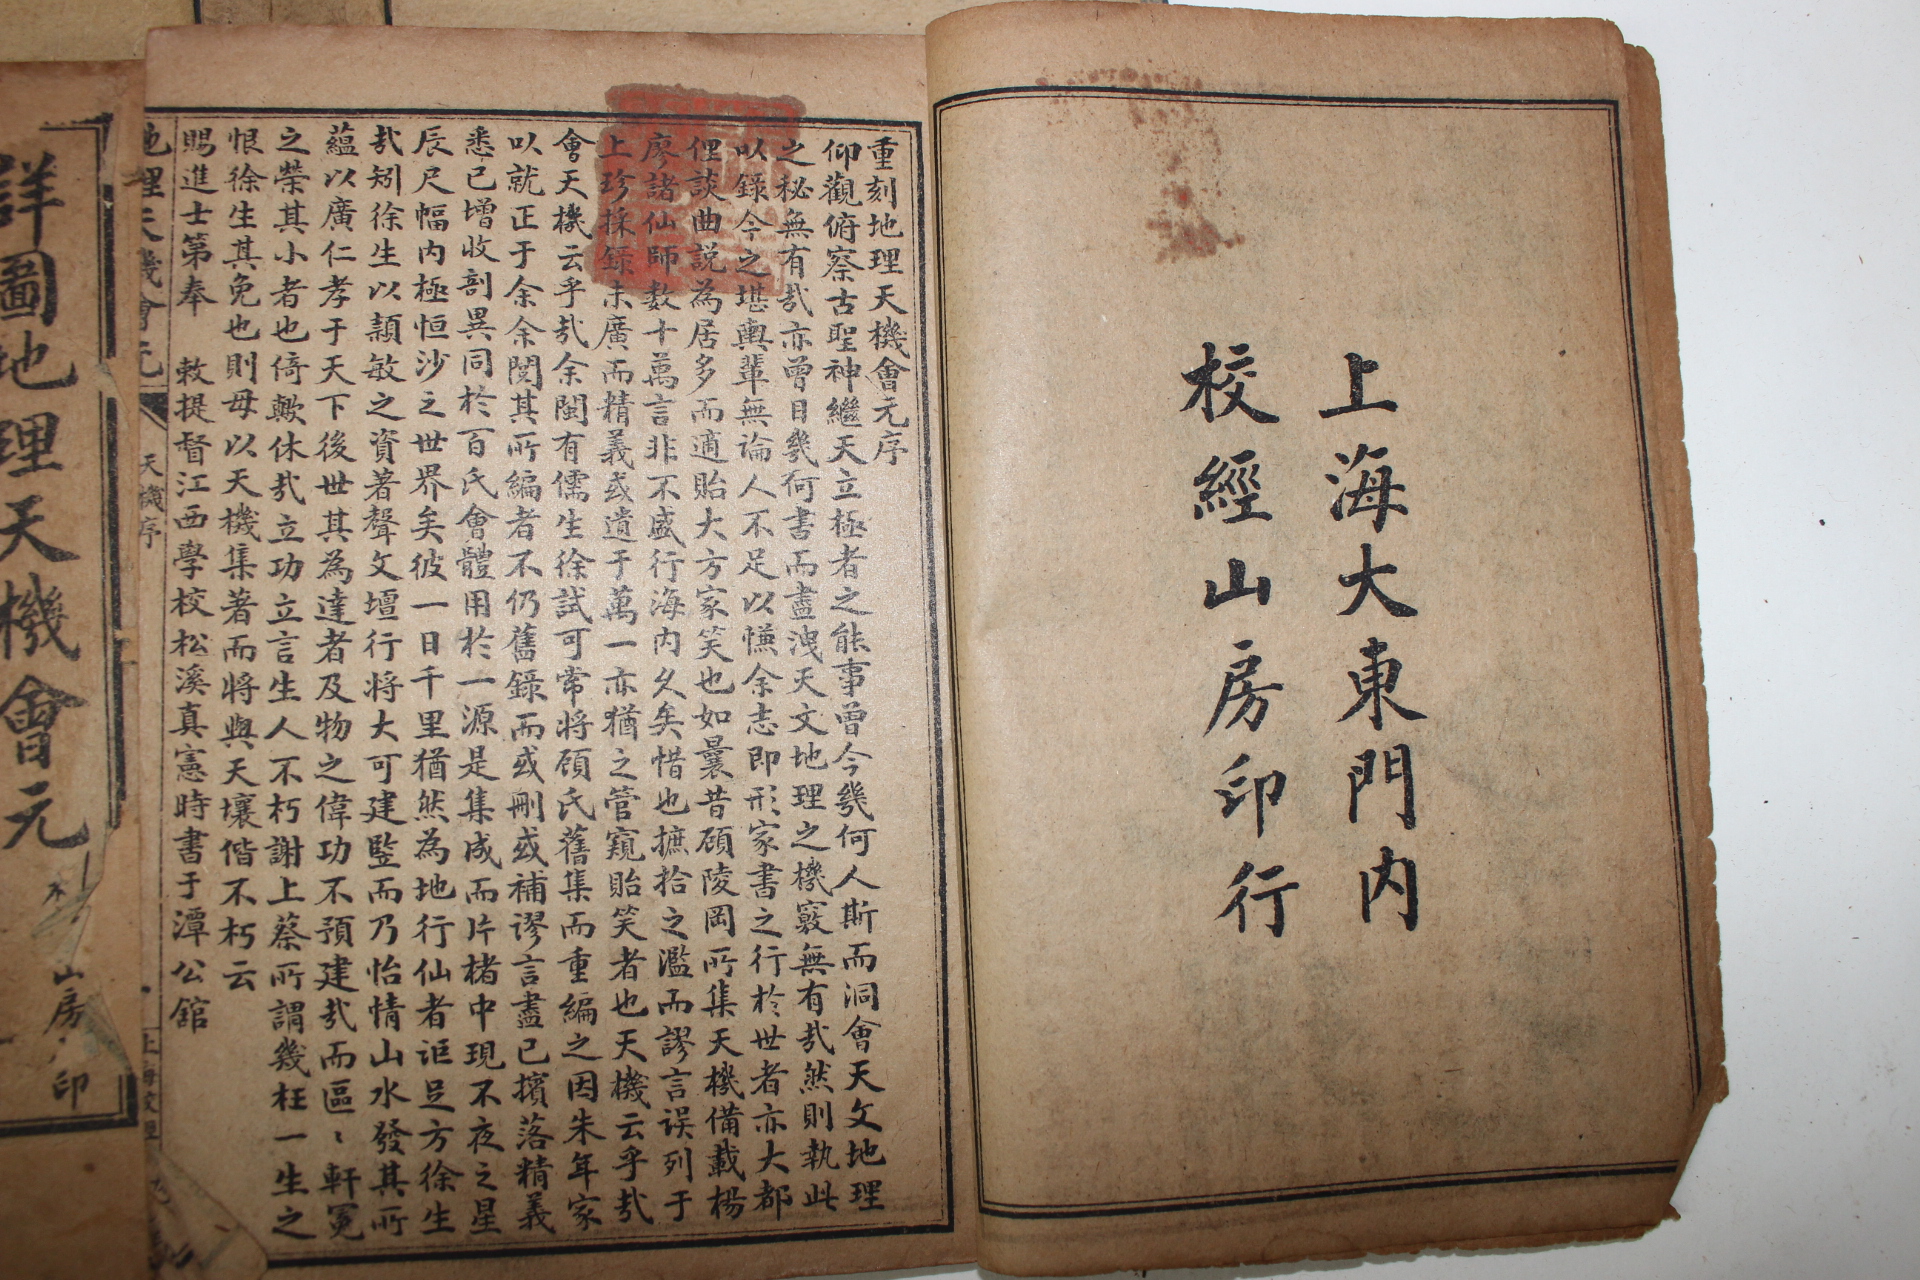 上海大東門内
校經山房印行
重刻地理天機會元序
仰觀俯察古聖神繼天立極者之能事曾今幾何人斯而洞會天文地理
之秘無有㢤亦曾日幾何書而盡洩天文地理之機竅無有㢤然則執此
以錄今之堪輿輩無論人不足以慊余志即形家書之行於世者亦大都
俚談曲説為居多而適貽大方家笑也如曩昔顧陵岡所集天機備載楊
廖諸仙師数十萬言非不盛行海内久矣惜也摭拾之濫而謬言误列于
上珍採錄未廣而精義或遺于萬一亦猶之管窺貽笑者也天機云乎㢤
會天機云乎㢤余閩有儒生徐試可常将顧氏舊集而重編之因朱年家
以就正于余余閱其所编者不仍舊録而或刪或補謬言盡已擯落精義
悉已增收剖異同於百氏會體用於一源是集成而片楮中現不夜之星
辰尺幅内極恒沙之世界矣彼一日千里猶然為地行仙者詎足方徐生
㢤矧徐生以頴敏之資著聲文壇行将大可建竪而乃怡情山水發其所
蘊以廣仁孝于天下後世其為達者及物之偉功不預建㢤而區〻軒冕
之榮其小者也倚歟休㢤立功立言生人不朽謝上蔡所謂幾枉一生之
恨徐生其免也則毋以天機集著而将與天壤偕不朽云
賜進士第奉 敕提督江西學校松溪真憲時書于潭公館
地理天機會元
天機序
詳圖地理天機會元
山房印